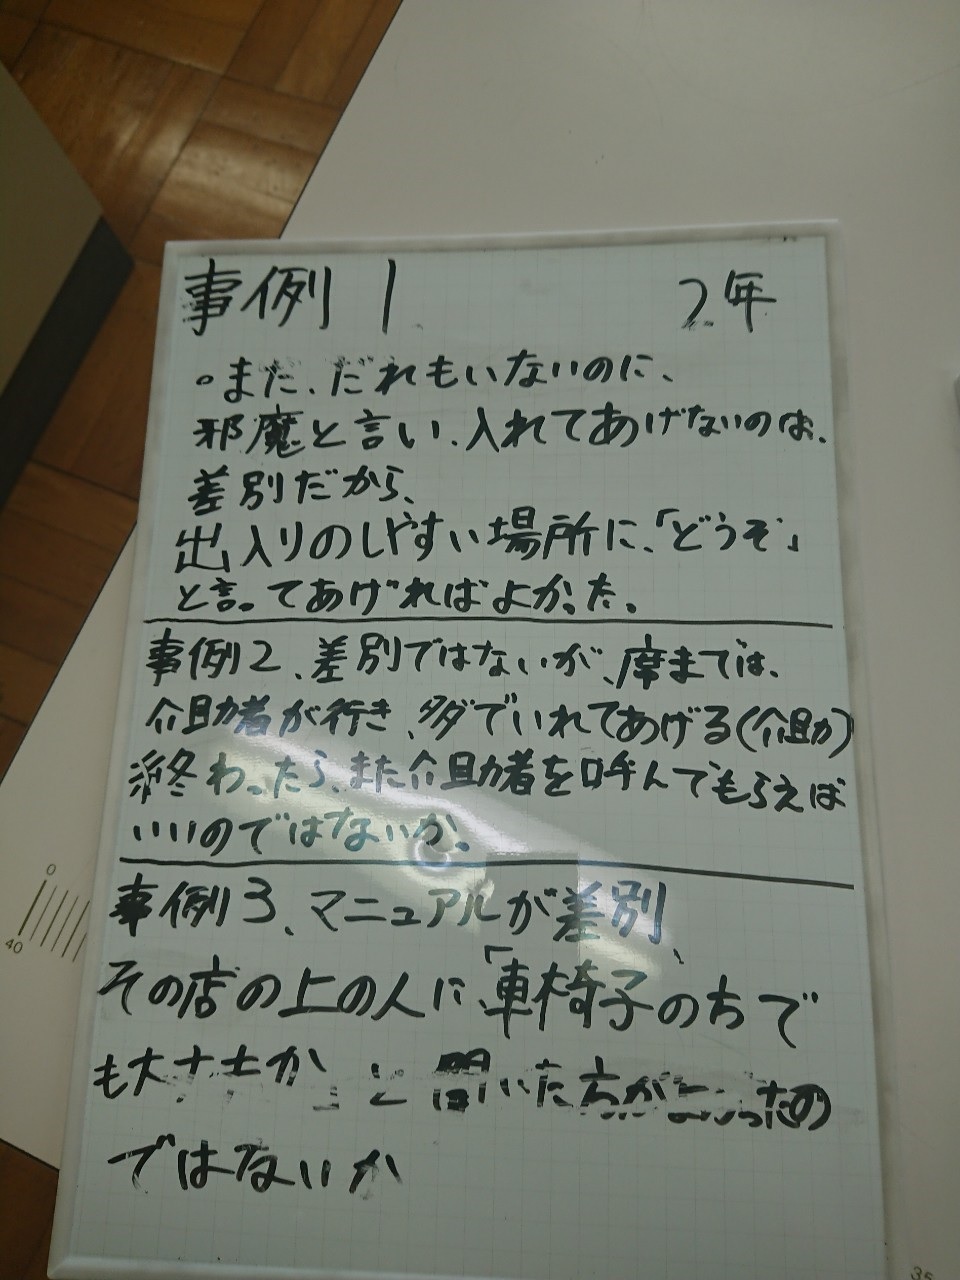 事例1 2年
。まだ、だれもいないのに、
邪魔と言い、入れてあげないのは、
差別だから、
出入りのしやすい場所に、「どうぞ」
と言ってあげればよかった。
事例2、差別ではないが、席までは、
介助者が行き、多ダでいれてあげる(介助)
終わったら、また介助者を呼んでもらえば
いいのではないか。
事例3、マニュアルが差別、
その店の上の人に、「車椅子の方で
も大丈夫か」と聞いた方がよかったの
ではないか
0
40
35